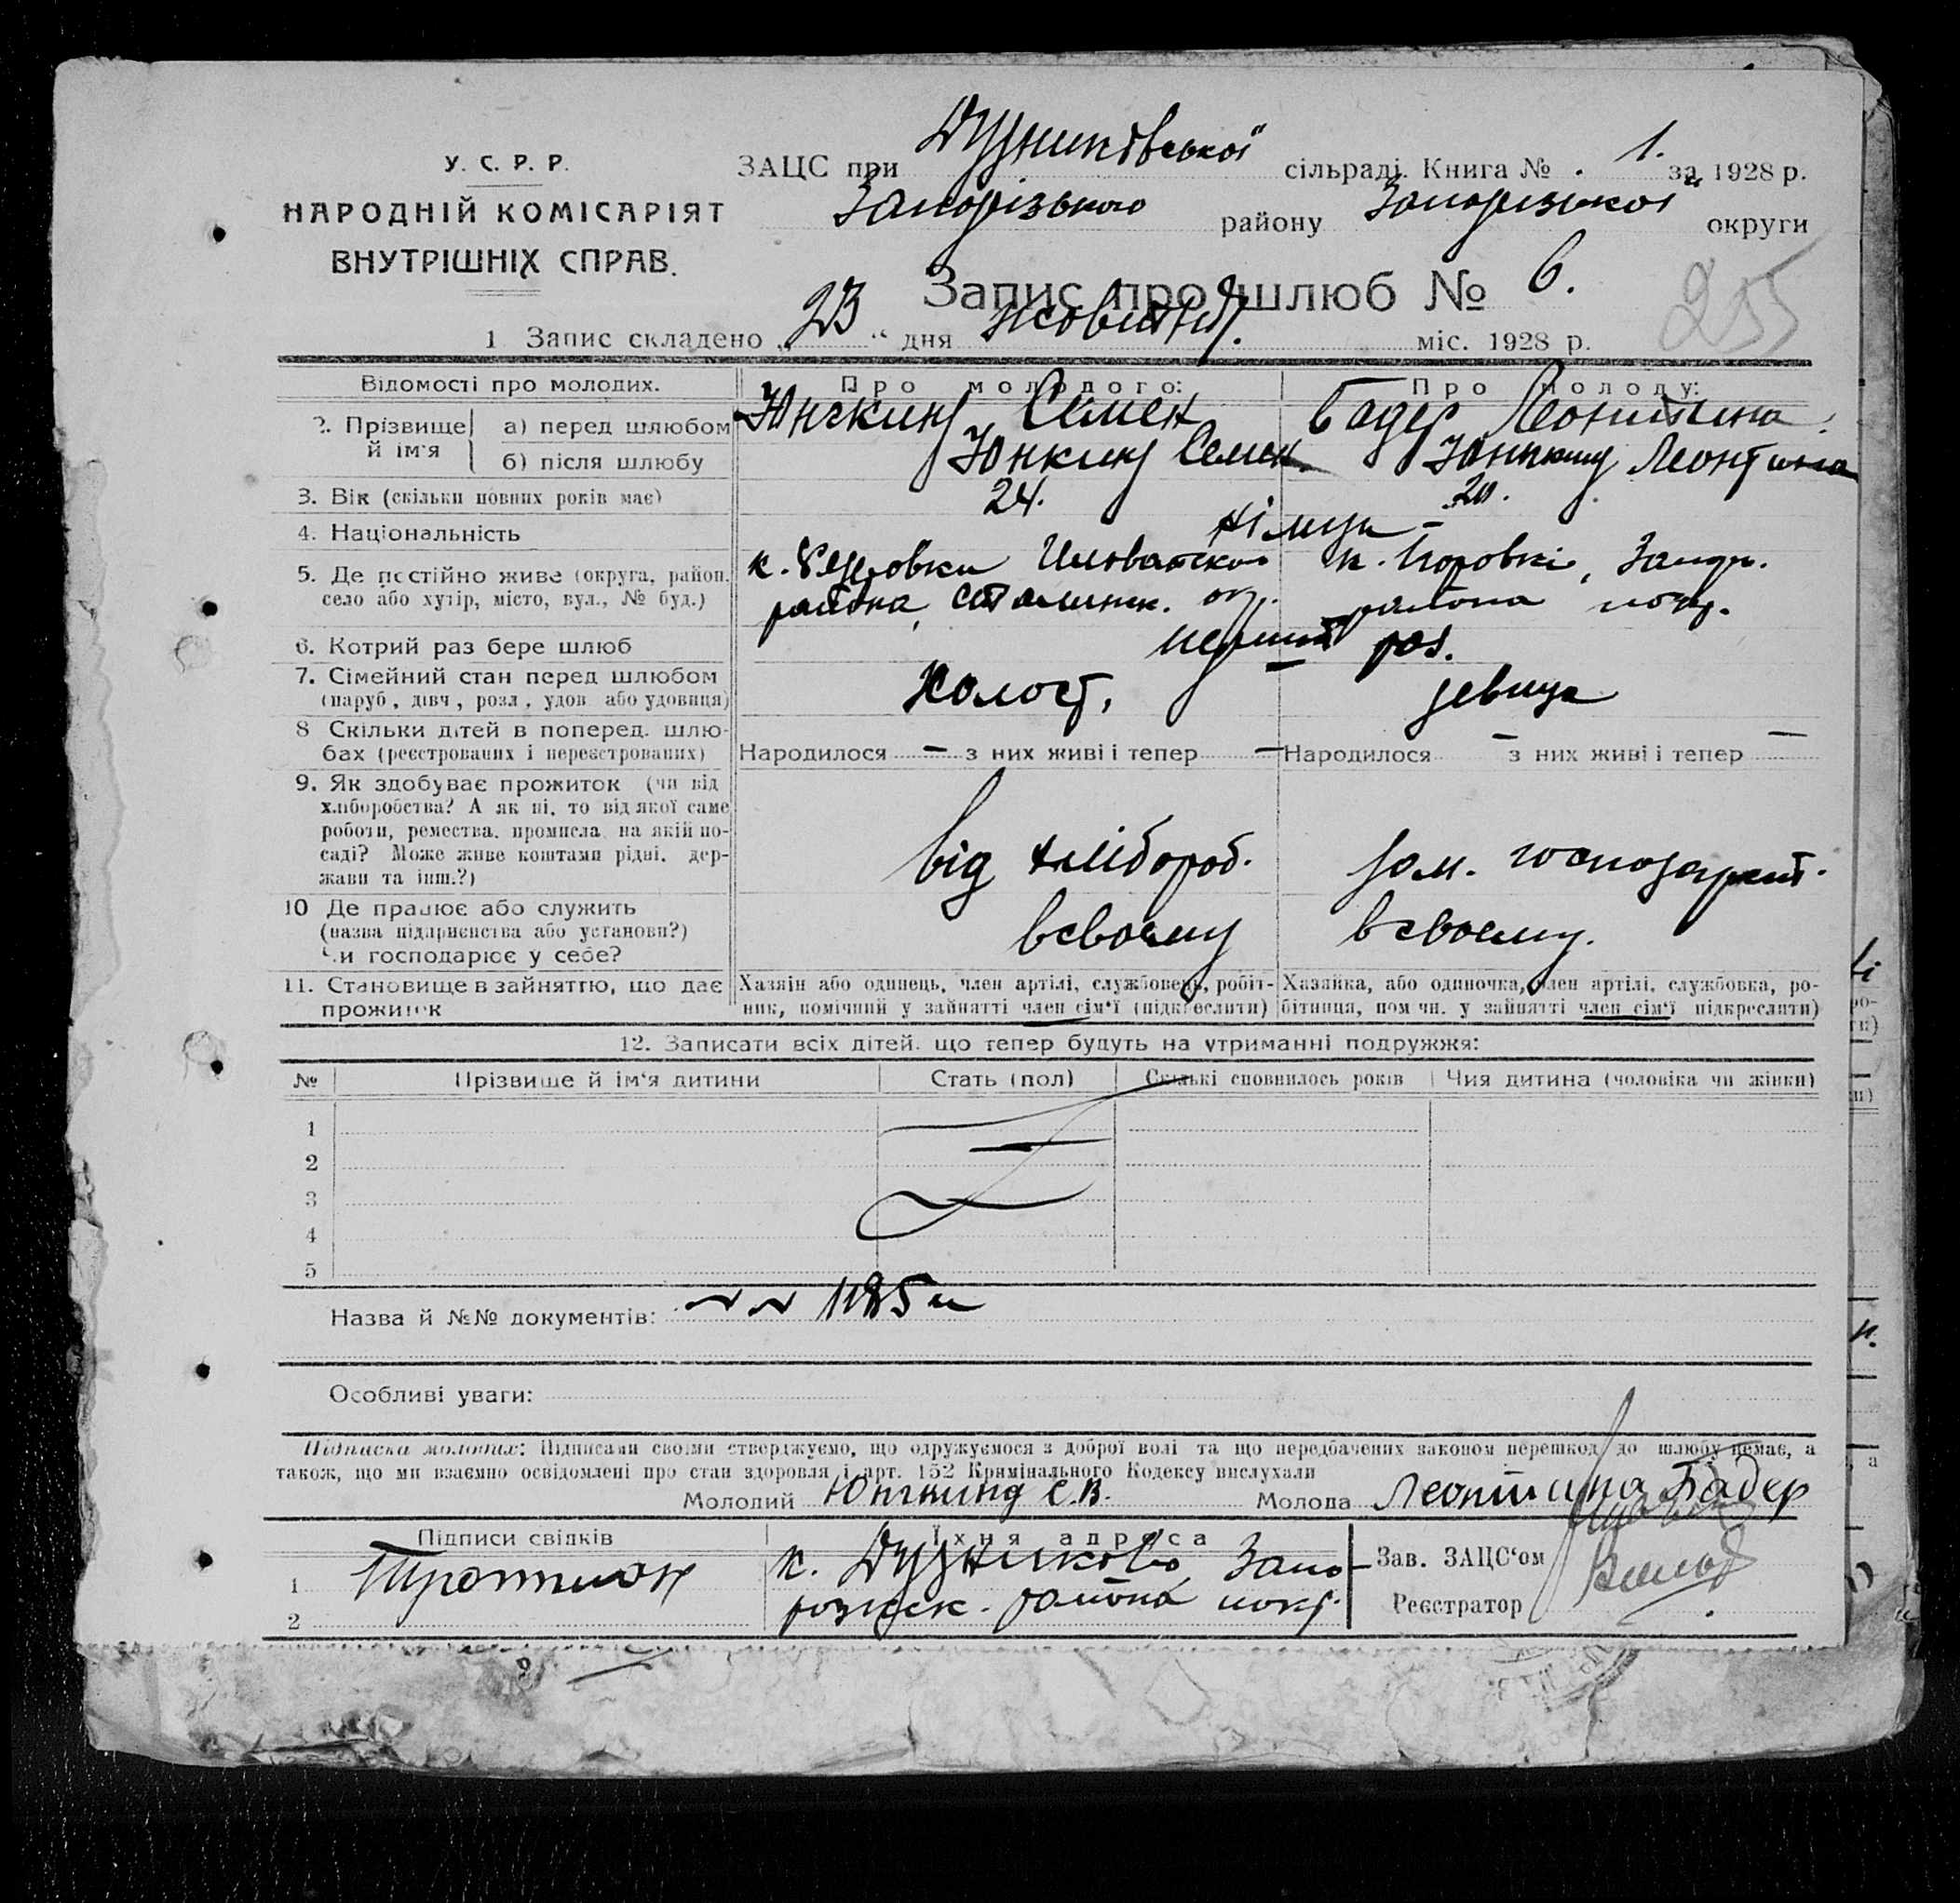 У. С. Р. Р.
НАРОДНІЙ КОМІСАРІЯТ
ВНУТРІШНІХ СПРАВ.
ЗАЦС при сільраді. Книга № 1. за 1928 р.
Запорізького району Запорізької округи
Запис про шлюб № 6.
255
1 Запис складено „23“ дня жовтня міс. 1928 р.
Відомості про молодих.
Про молодого:
Про молоду:
2. Прізвище й ім'я
а) перед шлюбом
Семен
Бадер Леонтина
б) після шлюбу
Юнкинд Семен
Леонтина
3. Вік (скільки повних років має)
24.
20.
4. Національність
німці
5. Де постійно живе (округа, район, село або хутір, місто, вул., № буд.)
района, Сталинск. окр.
района
6. Котрий раз бере шлюб
перший раз.
7. Сімейний стан перед шлюбом (паруб., дівч., розл., удов. або удовиця)
Холост.
девица
8 Скільки дітей в поперед. шлюбах (реєстрованих і нереєстрованих)
Народилося — з них живі і тепер —
Народилося — з них живі і тепер —
9. Як здобуває прожиток (чи від
хліборобства? А як ні, то від якої саме
роботи, ремества, промисла, на якій по-
саді? Може живе коштами рідні, дер-
жави та інш.?)
від хлібороб.
дом. господарст.
10 Де працює або служить
(назва підприємства або установи?)
Чи господарює у себе?
в своему
в своему.
11. Становище в зайняттю, що дає
прожиток
Хазяїн або одинець, член артілі, службовець, робіт-
ник, помічний у зайнятті член сім'ї (підкреслити)
Хазяйка, або одиночка, член артілі, службовка, ро-
бітниця, пом чн. у зайнятті член сім'ї підкреслити)
12. Записати всіх дітей, що тепер будуть на утриманні подружжя:
№ Прізвище й ім'я дитини Стать (пол) Скількі сповнилось років Чия дитина (чоловіка чи жінки)
1
2
3
4
5
Назва й №№ документів:
Особливі уваги:
Підписка молодих: Підписами своїми стверджуємо, що одружуємося з доброї волі та що передбачених законом перешкод до шлюбу немає, а
також, що ми взаємно освідомлені про стан здоровля і арт. 152 Кримінального Кодексу вислухали
Молодий Юнгкинд С.В. Молода Леонтина Бадер
Підписи свідків
Їхня адреса
Зав. ЗАЦС'ом
Реєстратор
1
2
к. Запо-
рожск. района